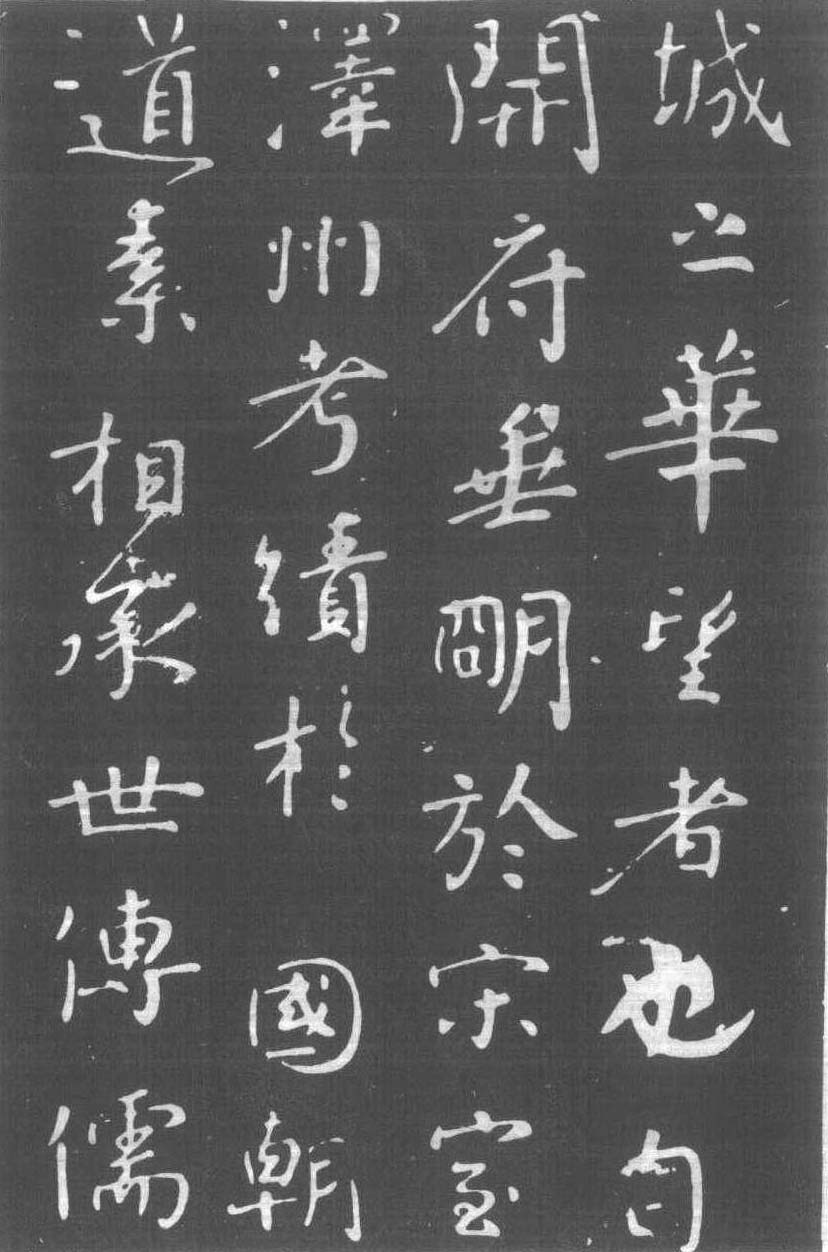 城之華望者也自
開府垂明於宋室
澤州考績於國朝
道素相承世傳儒